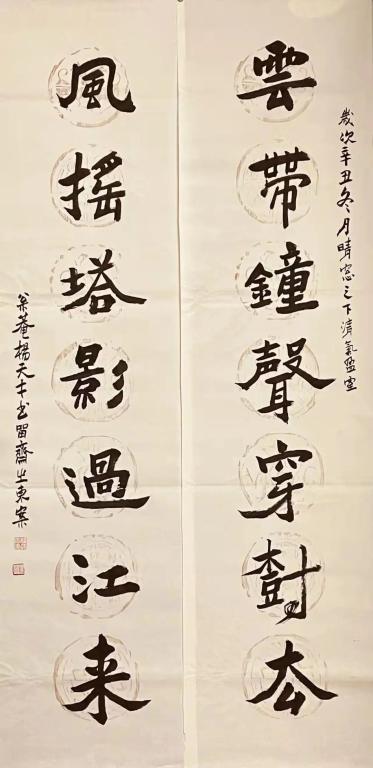 歲次辛丑冬月晴窓之下清氣盈室
雲帶鐘聲穿樹厺
風搖塔影過江来
菴楊天才书留齋之東案